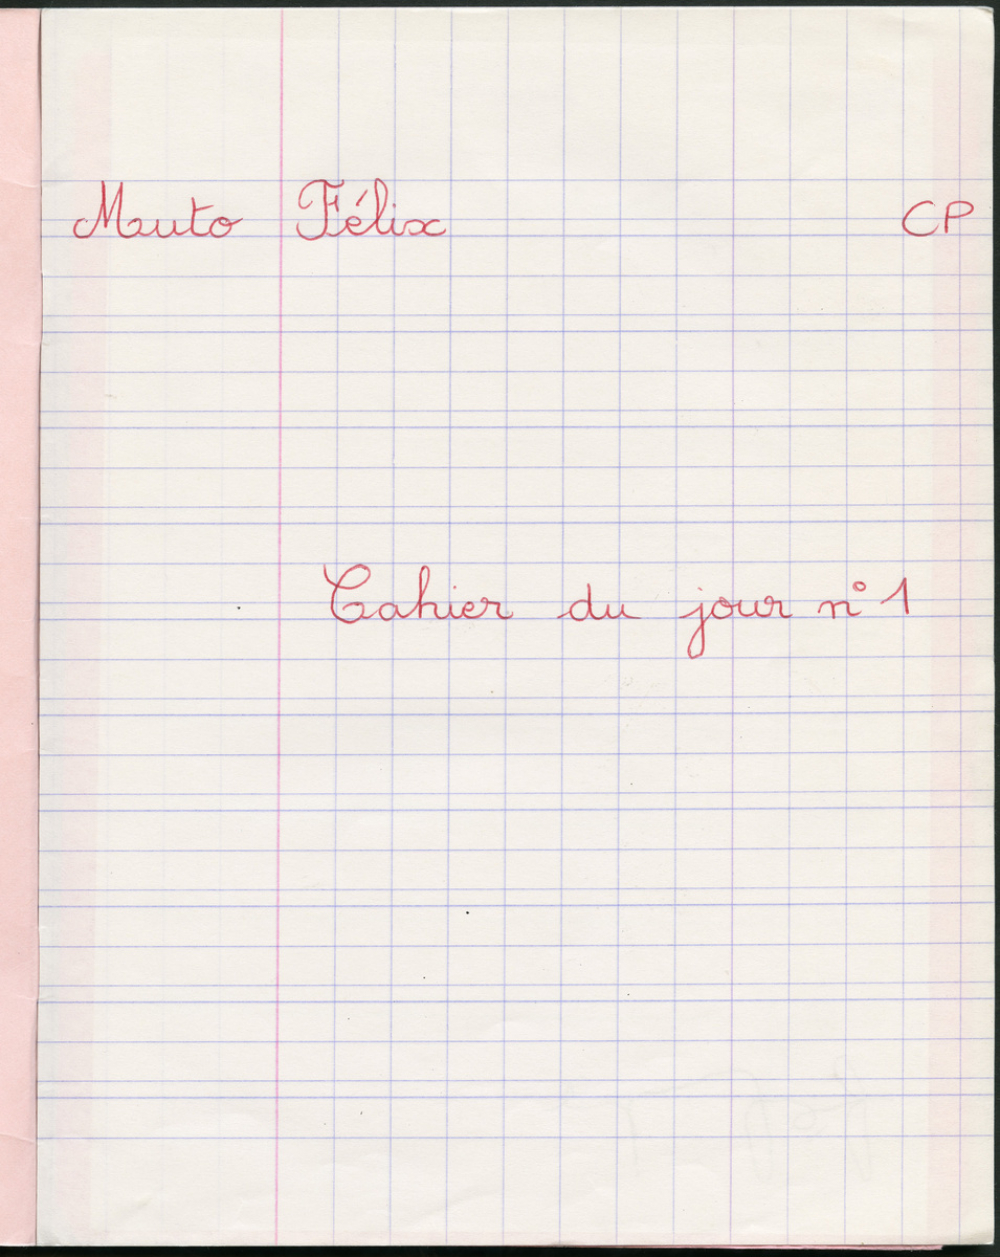 Mauto Félix CP
Cahier du jour n° 1